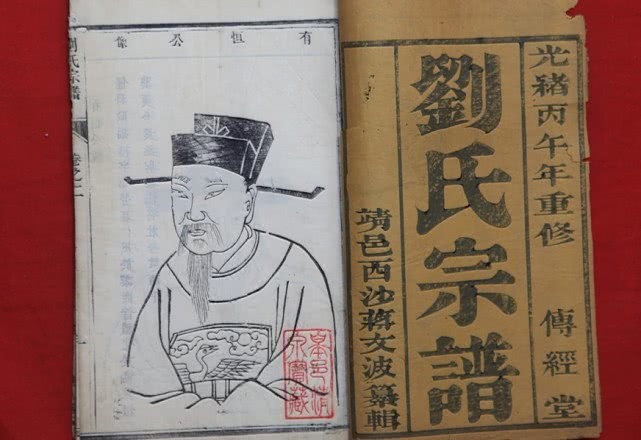 光緒丙午年重修
傳經堂
劉氏宗譜
靖邑西沙蔣文波纂輯
有恒公像
劉氏宗譜
卷之